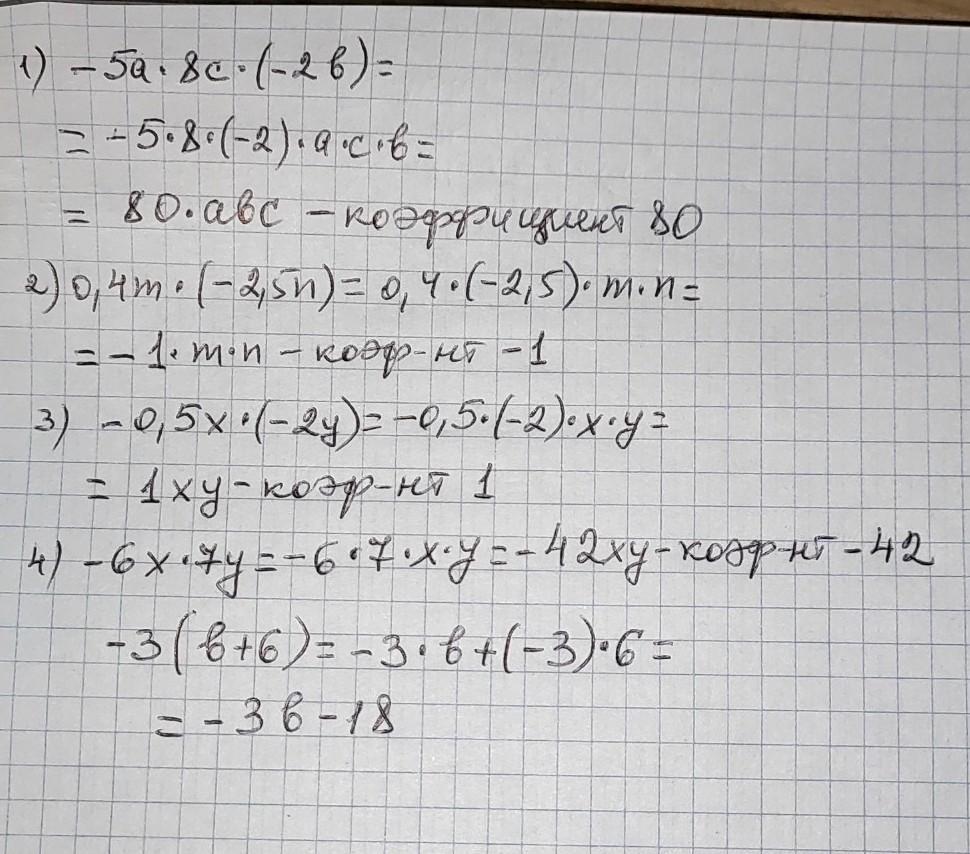 1) -5a·8c·(-2в)=
= -5·8·(-2)·a·c·в=
= 80·aвc - коэффициент 80
2) 0,4m·(-2,5n)= 0,4·(-2,5)·m·n=
= -1·m·n - коэф-нт -1
3) -0,5x·(-2y)= -0,5·(-2)·x·y=
= 1xy - коэф-нт 1
4) -6x·7y= -6·7·x·y= -42xy - коэф-нт -42
-3(в+6)= -3·в+(-3)·6=
= -3в-18